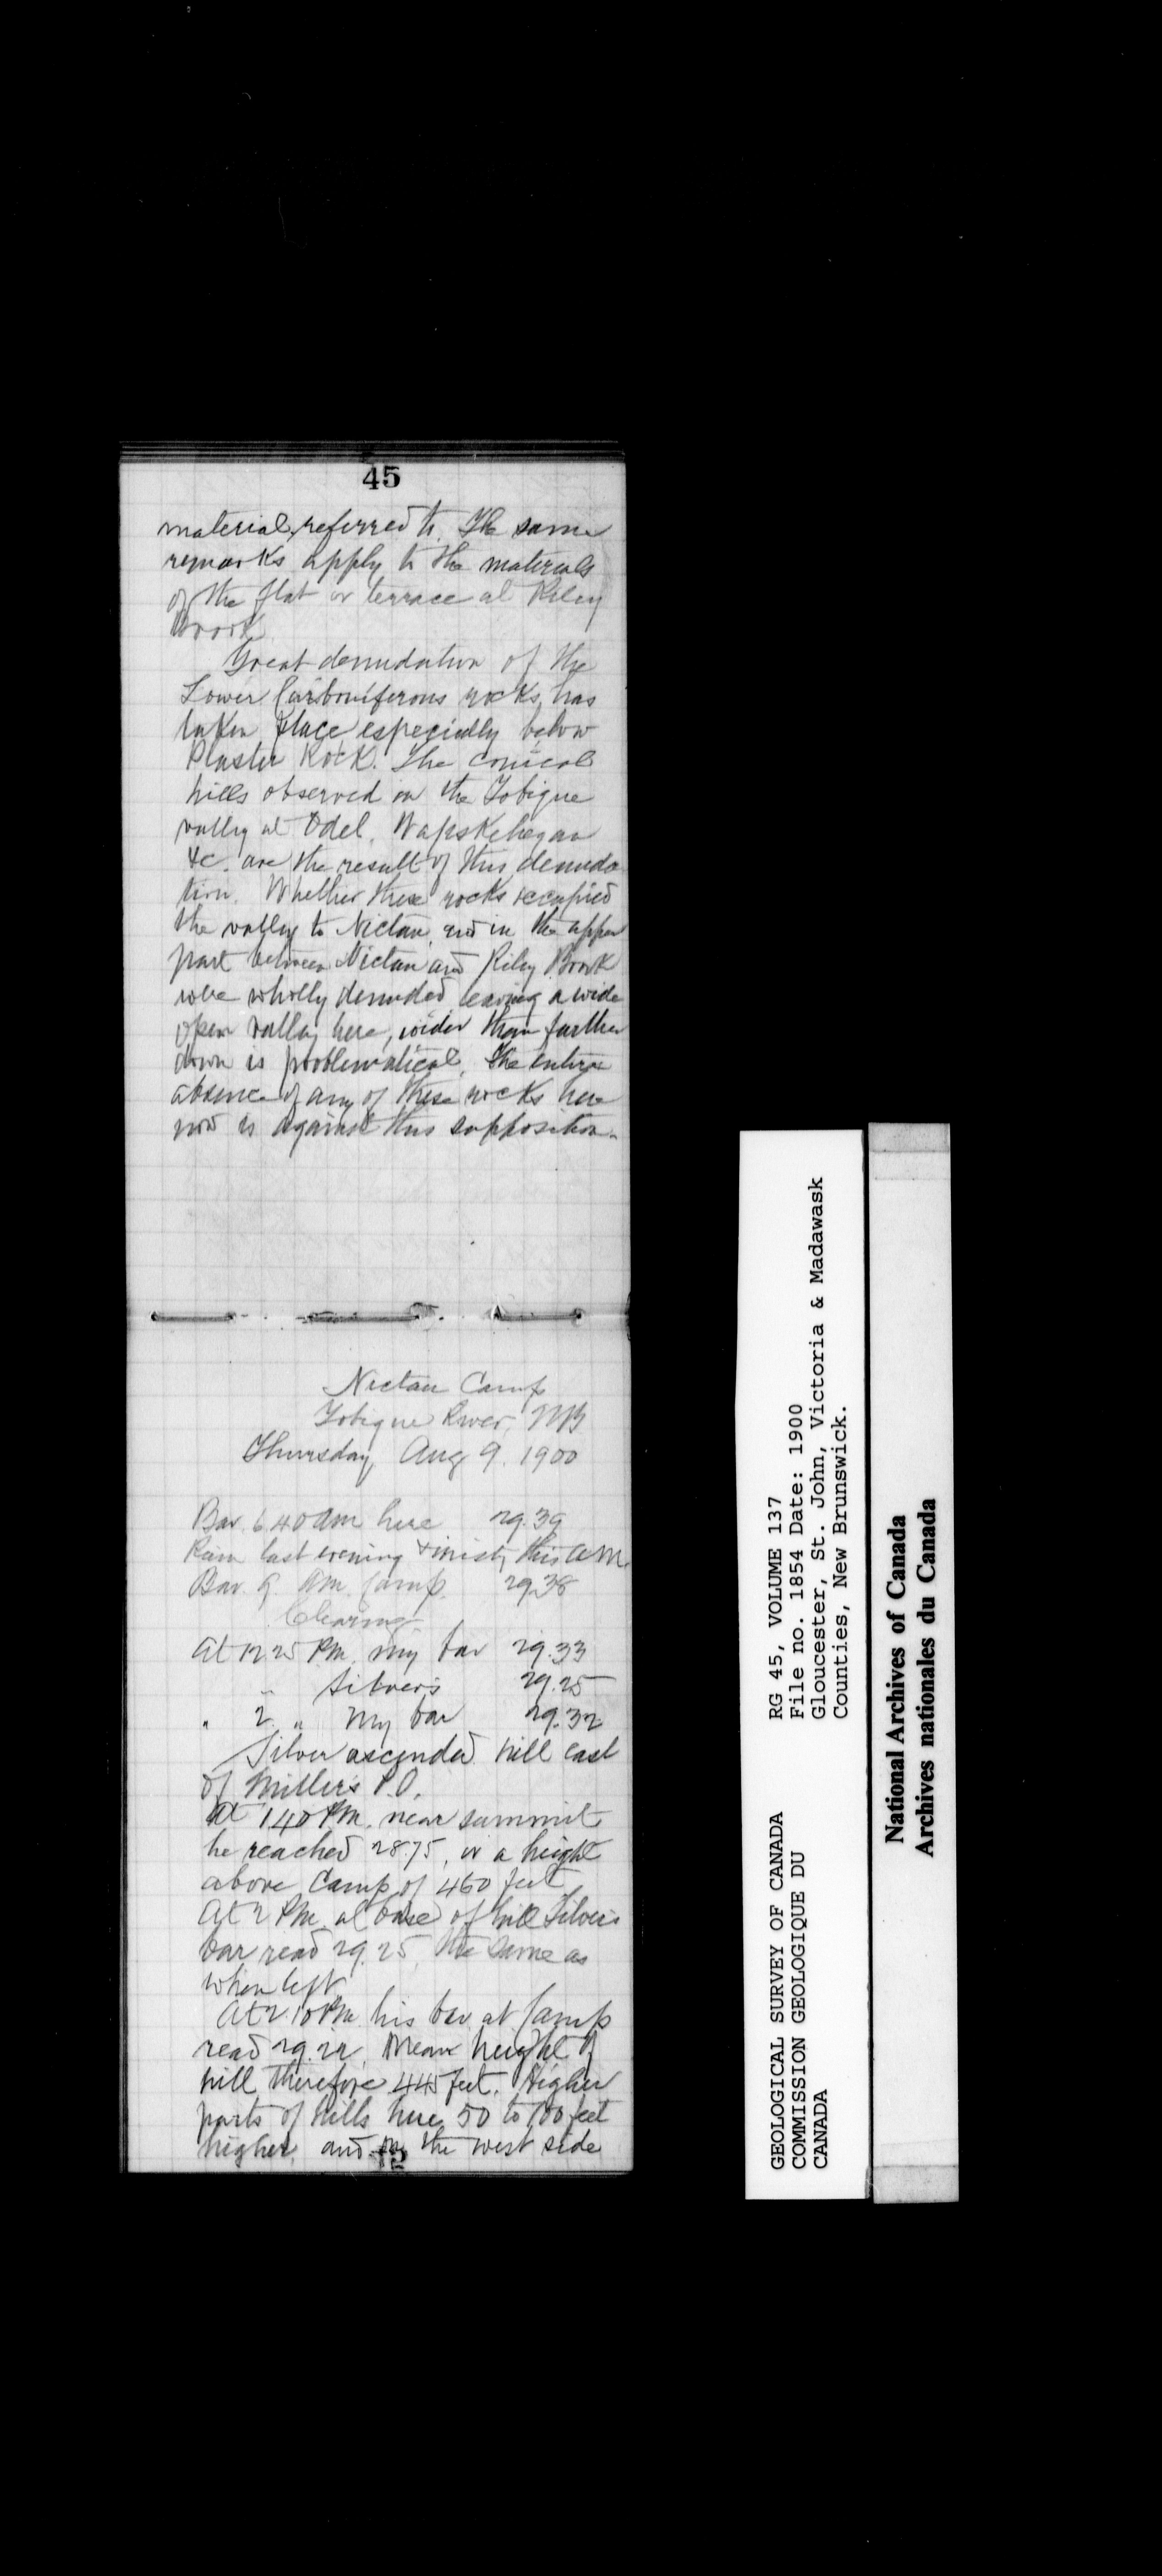 45
material referred to. The same
remarks apply to the materials
of the flat or terrace at Riley
Brook.
Great denudation of the
Lower Carboniferous rocks has
taken place especially below
Plaster Rock. The conical
hills observed in the Tobique
valley at Odel, Wapskehegan
&c. are the result of this denuda
tion. Whether these rocks occupied
the valley to Nictau, and in the upper
part between Nictau and Riley Brook
were wholly denuded leaving a wide
open valley here, wider than further
down is problematical. The entire
absence of any of these rocks here
now is against this supposition.
Nictau Camp
Tobique River, NB
Thursday Aug 9. 1900
Bar. 6.40 am here 29.39
Rain last evening & misty this AM.
Bar. 9. AM. Camp. 29.38
Clearing
At 12.25 PM. my bar 29.33
" Silver's 29.25
" 2 " My bar 29.32
Silver ascended hill east
of Miller's P.O.
At 1.40 PM. near summit
he reached 28.75, or a height
above Camp of 460 feet
At 2 PM. at base of hill Silver's
bar read 29.25, the same as
when left
At 2.10 PM his bar at Camp
read 29.22. Mean height of
hill therefore 445 feet. Higher
parts of hills here 50 to 100 feet
higher, and on the west side
RG 45, VOLUME 137
File no. 1854 Date: 1900
Gloucester, St. John, Victoria & Madawask
Counties, New Brunswick.
GEOLOGICAL SURVEY OF CANADA
COMMISSION GEOLOGIQUE DU
CANADA
National Archives of Canada
Archives nationales du Canada